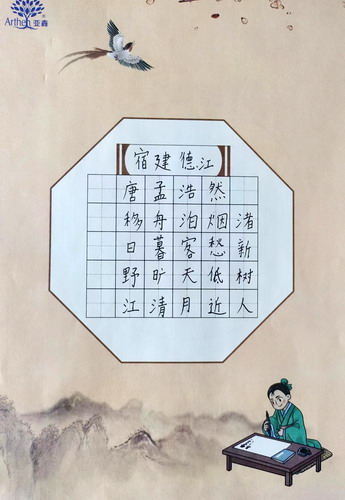 Arthen 亚鑫
宿建德江
唐孟浩然
移舟泊烟渚
日暮客愁新
野旷天低树
江清月近人